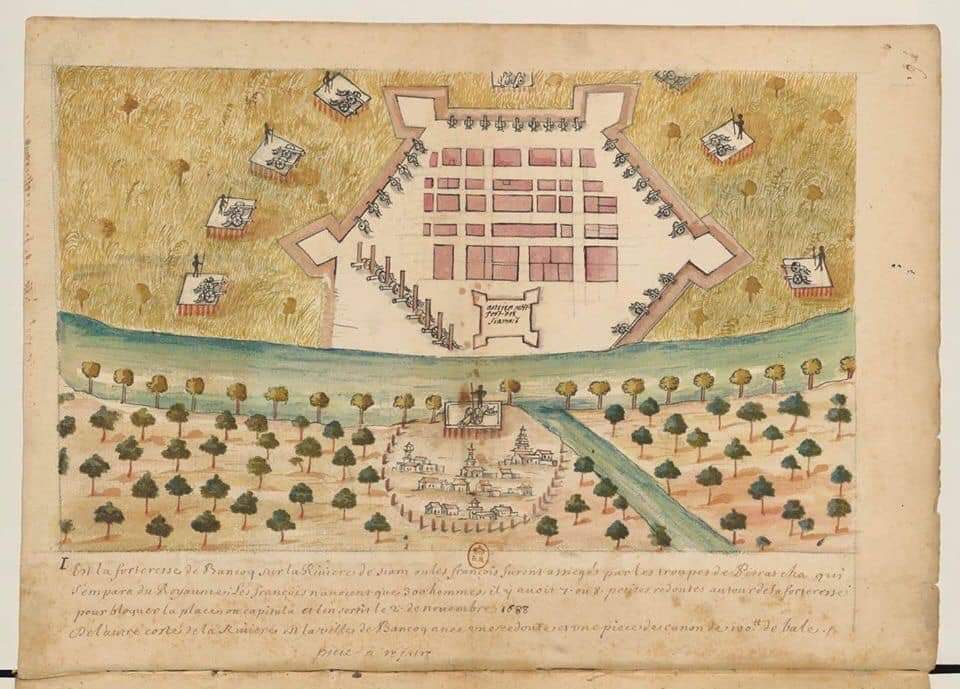 I Est la forteresse de Bancoq sur la Riviere de siam ou les françois furent assiegés par les troupes de Petratcha qui
s'empara du Royaume. Les françois n'auoient que 300 hommes, il y auoit 7. ou 8. petites redoutes autour de la forteresse
pour bloquer la place on capitula et l'en sortit le 2. de novembre 1688
De l'autre costé de la Riviere est la ville de Bancoq avec une redoute et une piece de canon de 100.tt de bale.